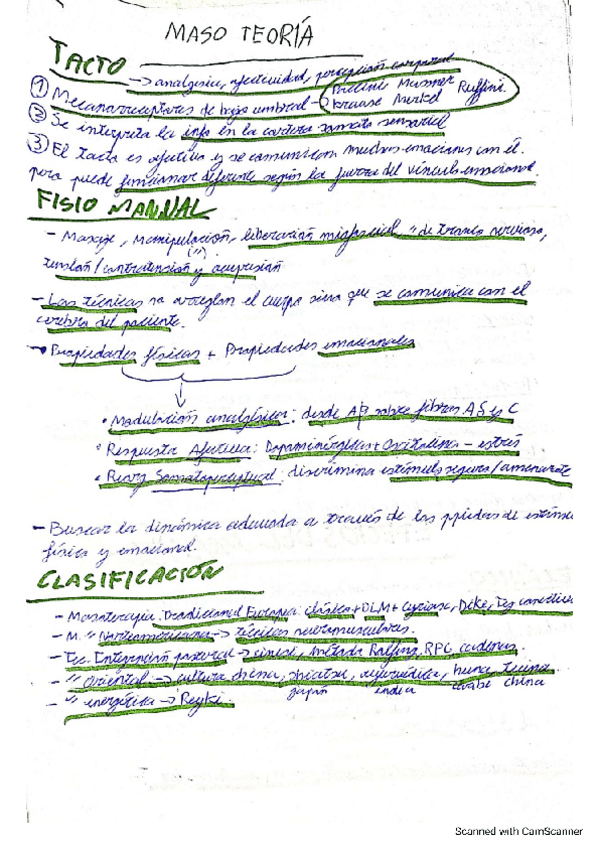 MASO TEORÍA
TACTO -> analgesia, afectividad, percepción corporal
① Mecanorreceptores de bajo umbral -> Pacini Meissner Ruffini
Krause Merkel
② Se interpreta la info en la corteza somato sensorial
③ El tacto es afectivo y se comunican muchas emociones con él.
pero puede funcionar diferente según la fuerza del vínculo emocional.
FISIO MANUAL
- Masaje, Manipulación, liberación miofascial, " de tronco nervioso,
tensión/contratensión y acupresión
- Las técnicas no arreglan el cuerpo sino que se comunica con el
cerebro del paciente.
-> Propiedades físicas + Propiedades emocionales
• Modulación analgésica: desde AB sobre fibras AS y C
• Respuesta Afectiva: Dopaminérgicas + Oxitocina - estrés
• Reorg Somatoperceptual: discrimina estímulo seguro/amenazante
- Buscar la dinámica adecuada a través de las ppiedades de estímulo
física y emocional.
CLASIFICACIÓN
- Masoterapia Tradicional Europea: clásico + DLM + Cyriax, Dike, Tej conectivo
- M. " Norteamericana -> técnicas neuromusculares
- Tec. Integración postural -> método Rolfing, RPG cadenas.
- " Oriental -> cultura china, shiatsu, ayurvédica, tuina.
japón india árabe china
- " energética -> Reyki.
Scanned with CamScanner